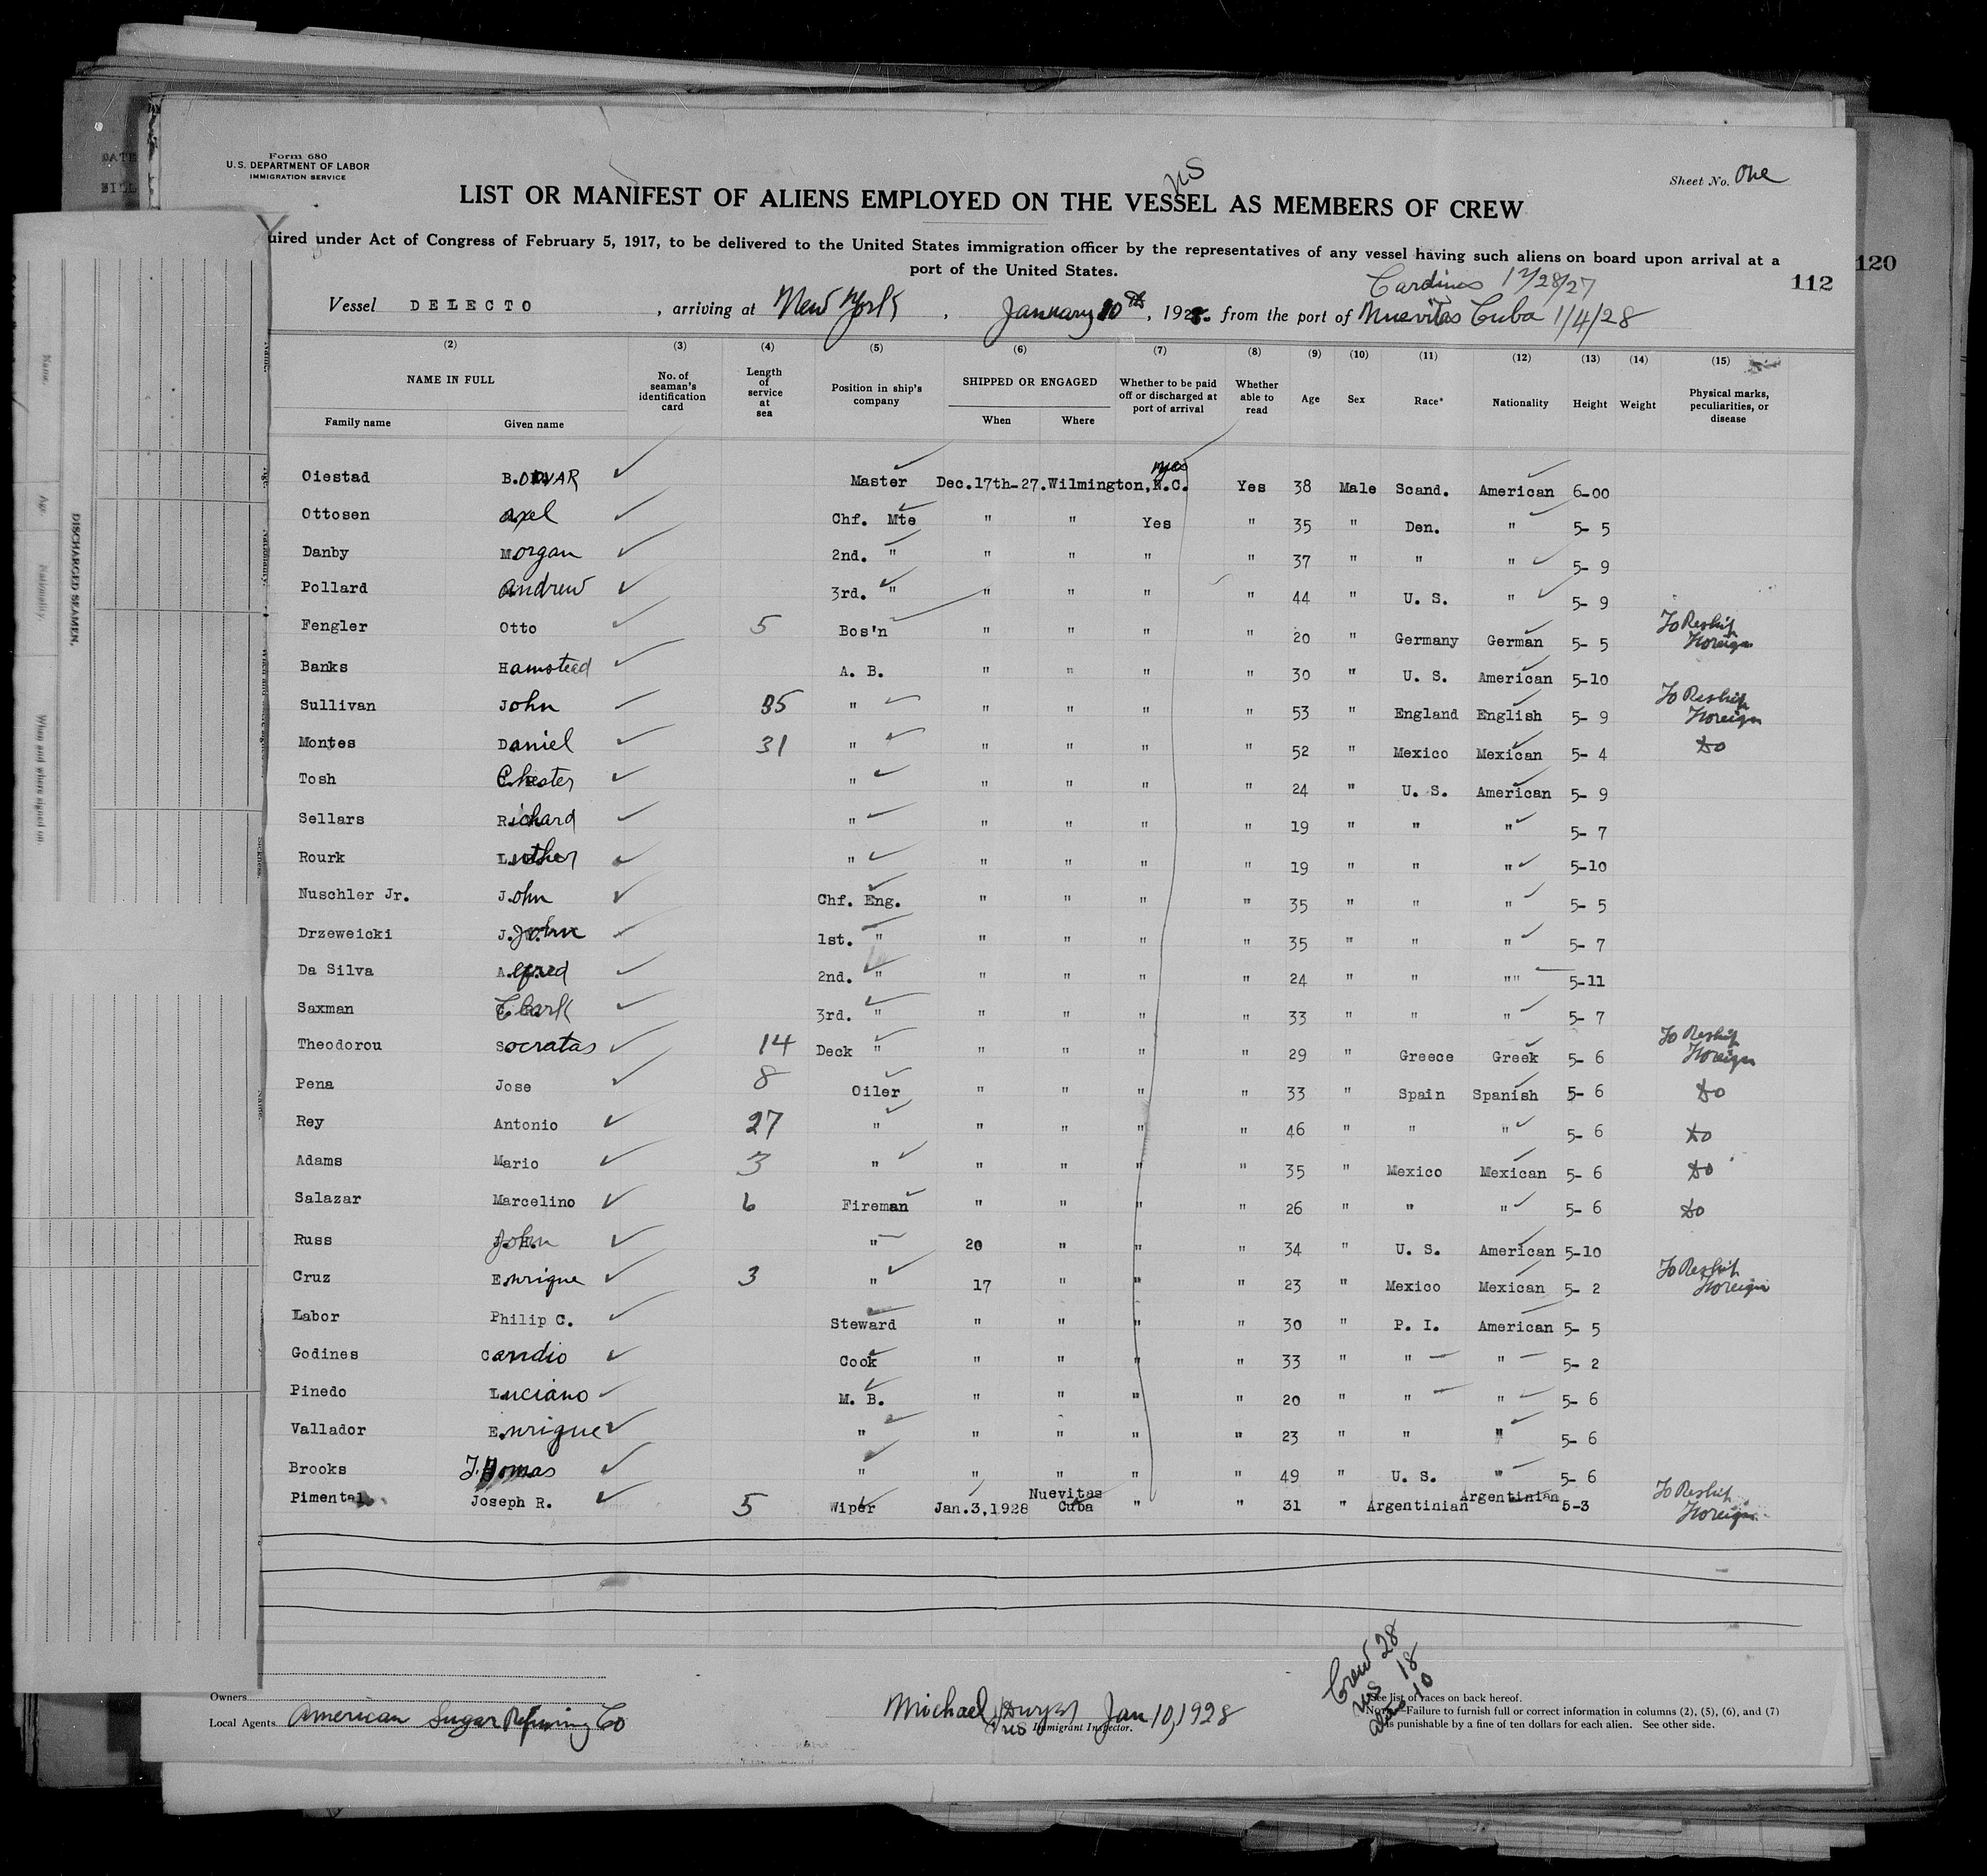 Form 680
U.S. DEPARTMENT OF LABOR
IMMIGRATION SERVICE
Sheet No. One
US
LIST OR MANIFEST OF ALIENS EMPLOYED ON THE VESSEL AS MEMBERS OF CREW
uired under Act of Congress of February 5, 1917, to be delivered to the United States immigration officer by the representatives of any vessel having such aliens on board upon arrival at a
port of the United States.
120
112
Cardinas 12/28/27
Vessel DELECTO , arriving at New York , January 10th, 1928. from the port of Nuevitas Cuba 1/4/28
(2) (3) (4) (5) (6) (7) (8) (9) (10) (11) (12) (13) (14) (15)
NAME IN FULL No. of seaman's identification card Length of service at sea Position in ship's company SHIPPED OR ENGAGED Whether to be paid off or discharged at port of arrival Whether able to read Age Sex Race* Nationality Height Weight Physical marks, peculiarities, or disease
Family name Given name When Where
Oiestad BODVAR Master Dec.17th-27.Wilmington,N.C. yes Yes 38 Male Scand. American 6-00
Ottosen Axel Chf. Mte " " Yes " 35 " Den. " 5- 5
Danby Morgan 2nd. " " " " " 37 " " " 5- 9
Pollard Andrew 3rd. " " " " " 44 " U. S. " 5- 9
Fengler Otto 5 Bos'n " " " " 20 " Germany German 5- 5 To Reship Foreign
Banks Hamstead A. B. " " " " 30 " U. S. American 5-10
Sullivan John 35 " " " " " 53 " England English 5- 9 To Reship Foreign
Montes Daniel 31 " " " " " 52 " Mexico Mexican 5- 4 do
Tosh Chester " " " " " 24 " U. S. American 5- 9
Sellars Richard " " " " " 19 " " " 5- 7
Rourk Luther " " " " " 19 " " " 5-10
Nuschler Jr. John Chf. Eng. " " " " 35 " " " 5- 5
Drzeweicki J. John 1st. " " " " " 35 " " " 5- 7
Da Silva Alfred 2nd. " " " " " 24 " " "" 5-11
Saxman Clark 3rd. " " " " " 33 " " " 5- 7
Theodorou Socratas 14 Deck " " " " " 29 " Greece Greek 5- 6 To Reship Foreign
Pena Jose 8 Oiler " " " " 33 " Spain Spanish 5- 6 do
Rey Antonio 27 " " " " " 46 " " " 5- 6 do
Adams Mario 3 " " " " " 35 " Mexico Mexican 5- 6 do
Salazar Marcelino 6 Fireman " " " " 26 " " " 5- 6 do
Russ John " 20 " " " 34 " U. S. American 5-10
Cruz Enrique 3 " 17 " " " 23 " Mexico Mexican 5- 2 To Reship Foreign
Labor Philip C. Steward " " " " 30 " P. I. American 5- 5
Godines Candio Cook " " " " 33 " " " 5- 2
Pinedo Luciano M. B. " " " " 20 " " " 5- 6
Vallador Enrique " " " " " 23 " " " 5- 6
Brooks Thomas " " " " " 49 " U. S. " 5- 6
Pimental Joseph R. 5 Wiper Jan.3,1928 Nuevitas Cuba " " 31 " Argentinian Argentinian 5-3 To Reship Foreign
Crew 28
US 18
Alien 10
Owners
Local Agents American Sugar Refining Co
Michael Dwyer Jan 10, 1928
Immigrant Inspector.
*See list of races on back hereof.
NOTE.—Failure to furnish full or correct information in columns (2), (5), (6), and (7)
is punishable by a fine of ten dollars for each alien. See other side.
DISCHARGED SEAMEN,
Name
Age
Nationality
When and where signed on